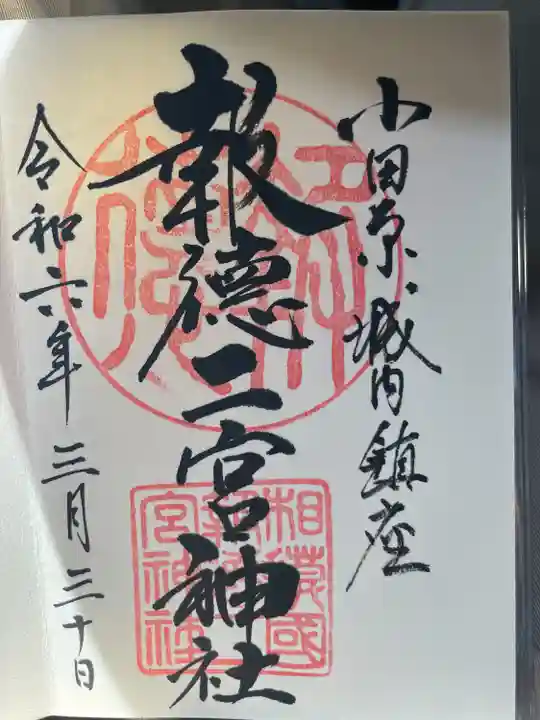 小田原城内鎮座
報徳二宮神社
令和六年三月三十日
相模國
宮神社